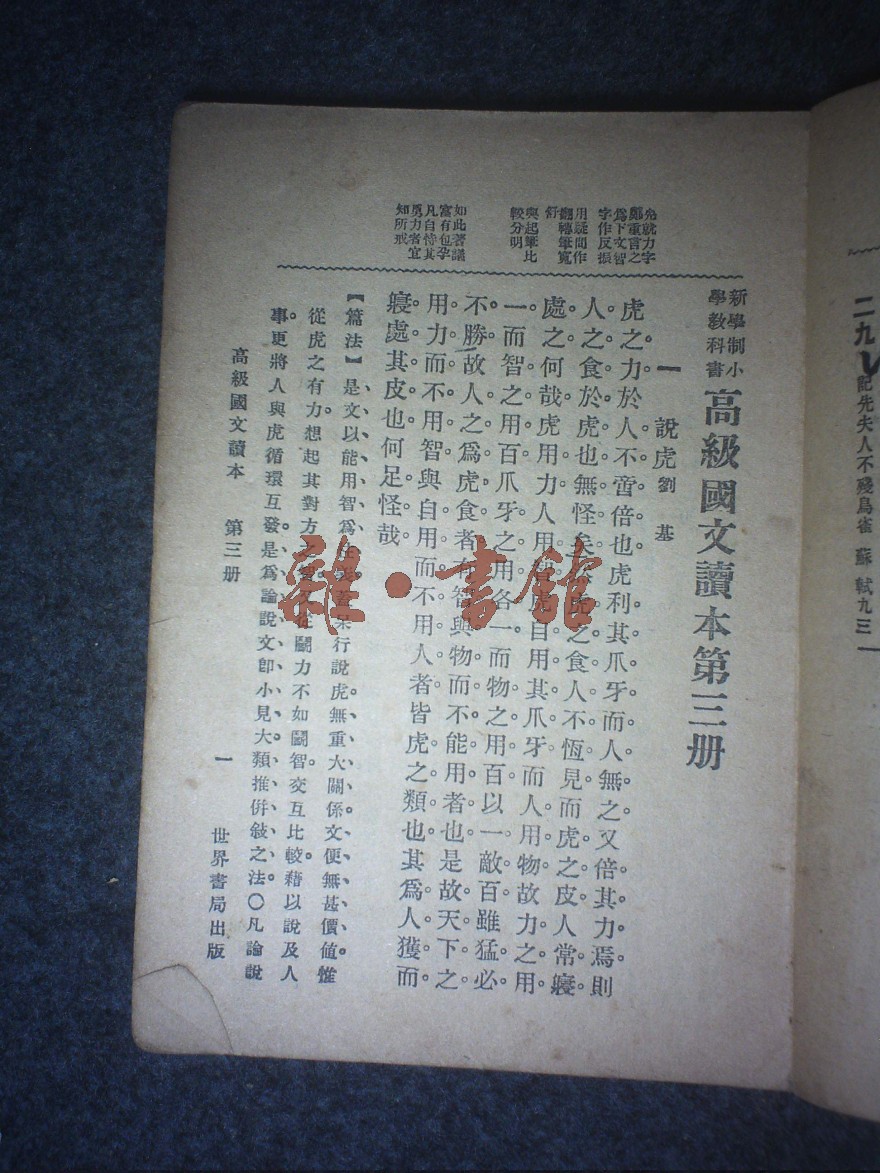 二九 記先夫人不殘鳥雀 蘇軾 九三
新學制小
學教科書
高級國文讀本第三册
先就力字
鄭重言之
爲下文智
字作反振
用疑問作
翻轉筆寬
舒
與起筆比
較分明
如此著議
富有包孕
凡自恃其
勇力者宜
知所戒
一 說虎 劉基
虎之力。於人不啻倍也。虎利其爪牙。而人無之。又倍其力焉。則
人之食於虎也。無怪矣。然虎之食人不恆見。而虎之皮。人常寢
處之。何哉。虎用力。人用智。虎自用其爪牙。而人用物。故力之用
一。而智之用百。爪牙之用各一。而物之用百。以一敵百。雖猛必
不勝。故人之爲虎食者。有智與物而不能用者也。是故天下之
用力而不用智。與自用而不用人者。皆虎之類也。其爲人獲而
寢處其皮也。何足怪哉
【篇法】是文以能用智爲 行說虎、無重大關係、文便無甚價値。惟
從虎之有力。想起其對方之 從鬭力不如鬭智。交互比較。藉以說及人
事。更將人與虎循環互發。是爲論說文卽小見大、類推併敍之法。〇凡論說
高級國文讀本 第三册 一 世界書局出版
雜·書館